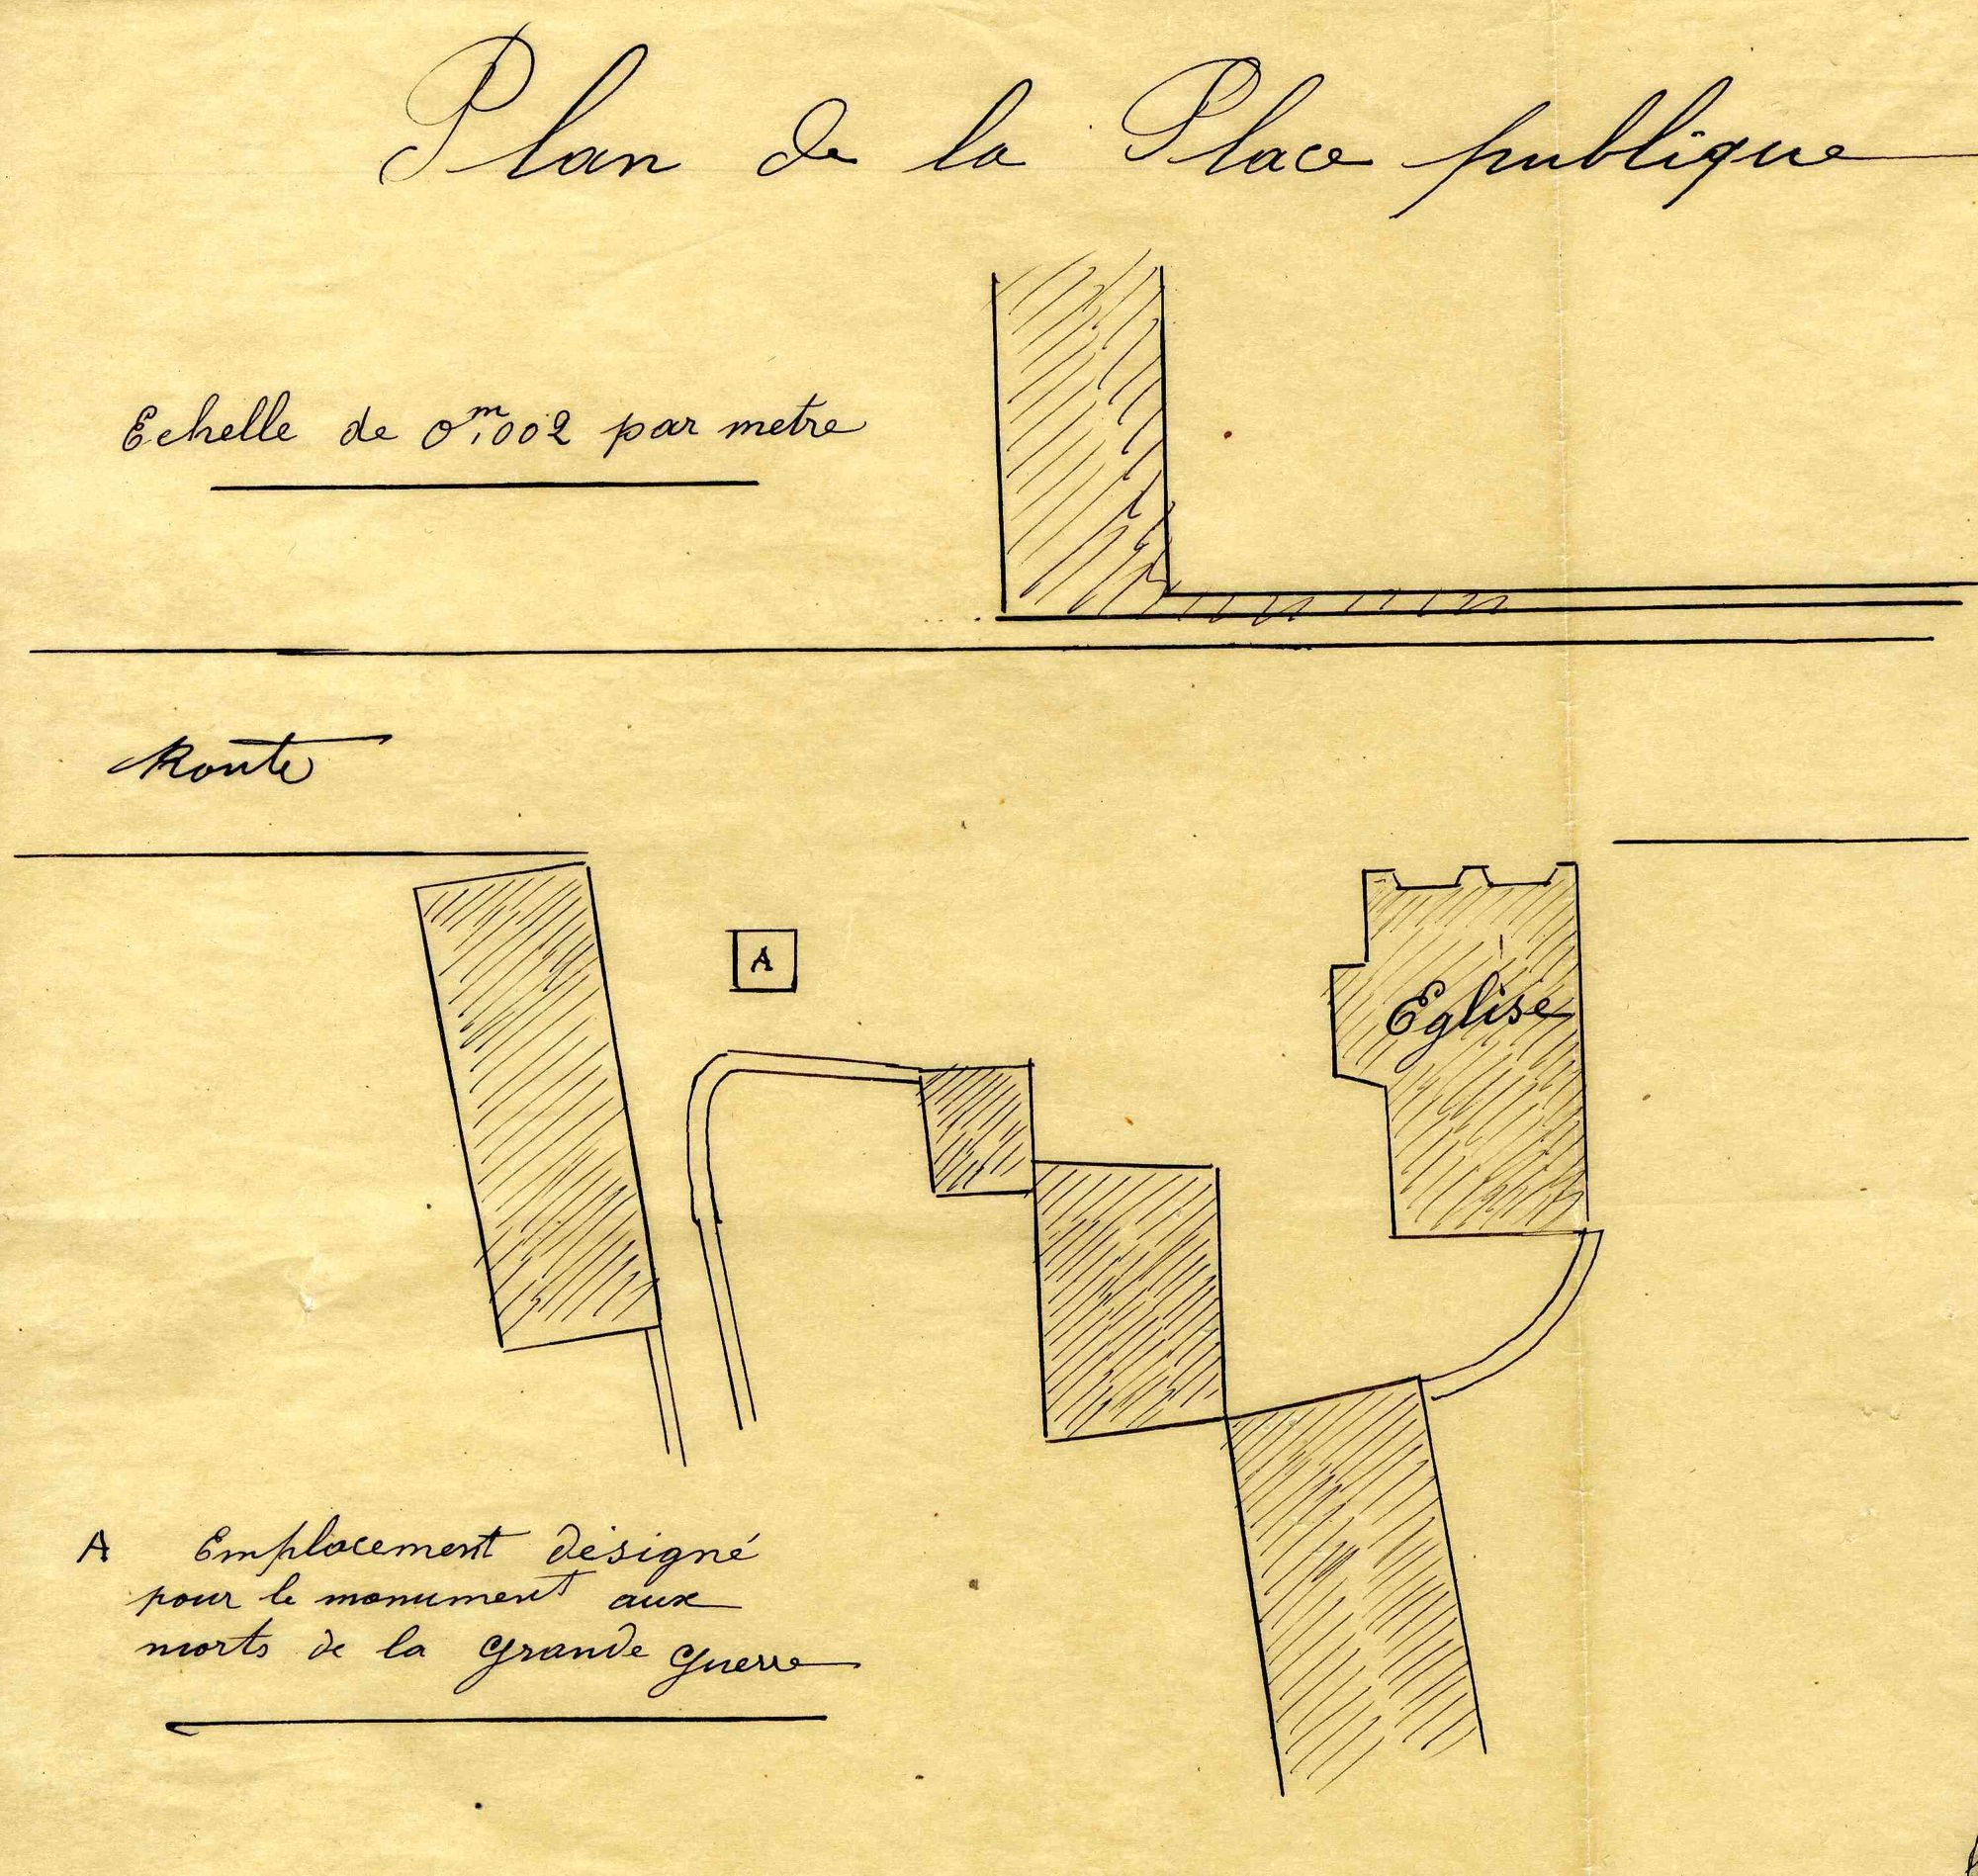 Plan de la Place publique
Echelle de 0m,002 par metre
Route
A
Eglise
A Emplacement désigné
pour le monument aux
morts de la Grande Guerre